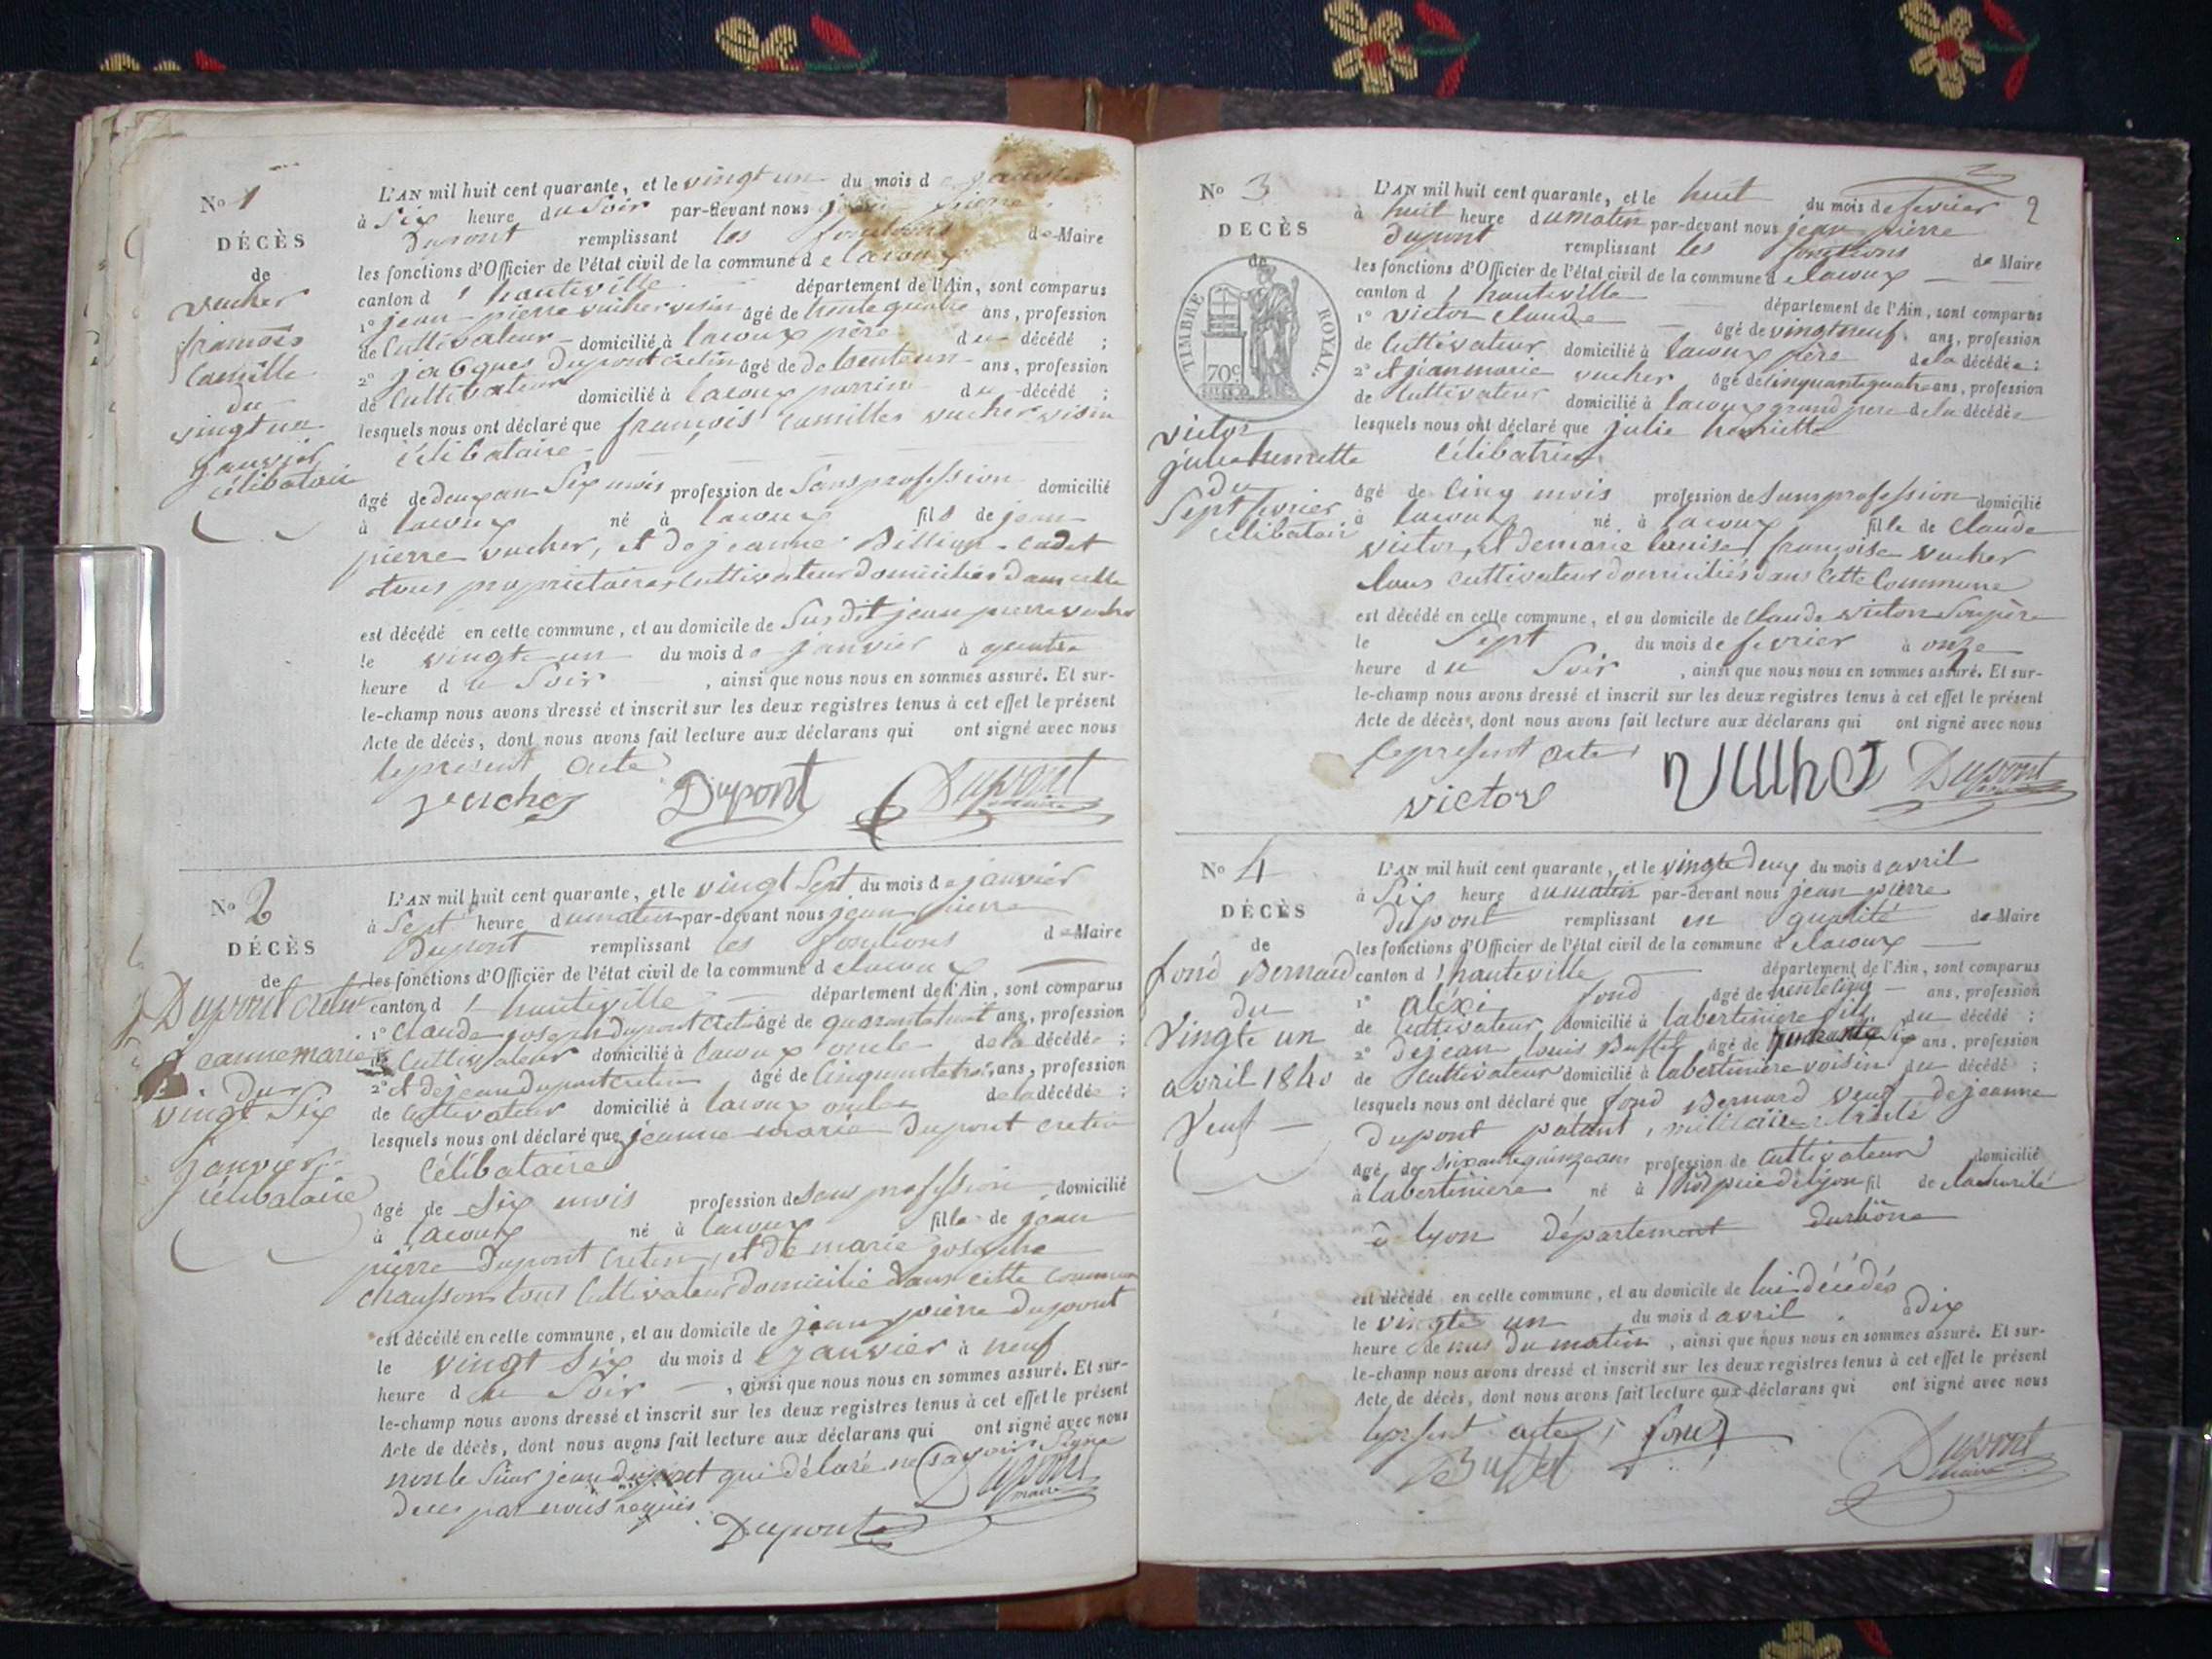 No 1
DÉCÈS
de
vucher
françois
Camille
du
vingt un
janvier
célibatair
L'AN mil huit cent quarante, et le vingt un du mois de janvier
à Six heure du Soir par-devant nous jean pierre
Dupont remplissant les fonctions de Maire
les fonctions d'Officier de l'état civil de la commune de lacoux
canton d' hauteville département de l'Ain, sont comparus
1º jean pierre vucher voisin âgé de trente quatre ans, profession
de Cultivateur domicilié à lacoux père du décédé ;
2º jacques Dupont cretin âgé de de trente un ans, profession
de Cultivateur domicilié à lacoux parrin du décédé ;
lesquels nous ont déclaré que françois Camilles vucher voisin
célibataire
âgé de deux an Six mois profession de Sans profession domicilié
à lacoux né à lacoux fils de jean
pierre vucher, et de jeanne Billion Cadet
tous propriétaires Cultivateur domiciliés dans cette
est décédé en cette commune, et au domicile de Sus dit jean pierre vucher
le vingt un du mois de janvier à quatre
heure du Soir , ainsi que nous nous en sommes assuré. Et sur-
le-champ nous avons dressé et inscrit sur les deux registres tenus à cet effet le présent
Acte de décès, dont nous avons fait lecture aux déclarans qui ont signé avec nous
le present acte
vucher Dupont Dupont
maire
No 2
DÉCÈS
de
Dupont cretin
jeanne marie
du
vingt Six
janvier
célibataire
L'AN mil huit cent quarante, et le vingt Sept du mois de janvier
à Sept heure du matin par-devant nous jean pierre
Dupont remplissant les fonctions de Maire
les fonctions d'Officier de l'état civil de la commune de lacoux
canton d' hauteville département de l'Ain, sont comparus
1º Claude joseph dupont cretin âgé de quarante huit ans, profession
de Cultivateur domicilié à lacoux oncle de la décédée ;
2º et de jean dupont cretin âgé de Cinquante trois ans, profession
de Cultivateur domicilié à lacoux oncle de la décédée ;
lesquels nous ont déclaré que jeanne marie dupont cretin
Célibataire
âgé de Six mois profession de sans profession domicilié
à lacoux né à lacoux fille de jean
pierre Dupont Cretin, et de marie josephe
chausson tous Cultivateur domicilié dans cette commune
est décédé en cette commune, et au domicile de jean pierre dupont
le vingt Six du mois de janvier à neuf
heure du Soir , ainsi que nous nous en sommes assuré. Et sur-
le-champ nous avons dressé et inscrit sur les deux registres tenus à cet effet le présent
Acte de décès, dont nous avons fait lecture aux déclarans qui ont signé avec nous
non le Sieur jean dupont qui déclaré ne savoir Signé
de ces par nous requis. Dupont Dupont
maire
No 3
2
DÉCÈS
de
TIMBRE ROYAL.
70c
victor
julie henriette
du
Sept fevrier
célibatair
L'AN mil huit cent quarante, et le huit du mois de fevrier
à huit heure du matin par-devant nous jean pierre
dupont remplissant les fonctions de Maire
les fonctions d'Officier de l'état civil de la commune de lacoux
canton d' hauteville département de l'Ain, sont comparus
1º victor Claude âgé de vingt neuf ans, profession
de Cultivateur domicilié à lacoux père de la décédée ;
2º et jean marie vucher âgé de Cinquante quatre ans, profession
de Cultivateur domicilié à lacoux grand pere de la décédée
lesquels nous ont déclaré que julie henriette
Célibatrice
âgé de Cinq mois profession de Sans profession domicilié
à lacoux né à lacoux fille de Claude
victor, et de marie Louise françoise vucher
tous cultivateur domiciliés dans cette Commune
est décédé en cette commune, et au domicile de Claude victor Son père
le Sept du mois de fevrier à onze
heure du Soir , ainsi que nous nous en sommes assuré. Et sur-
le-champ nous avons dressé et inscrit sur les deux registres tenus à cet effet le présent
Acte de décès, dont nous avons fait lecture aux déclarans qui ont signé avec nous
le present acte
victor Dupont
No 4
DÉCÈS
de
fond Bernard
du
Vingt un
avril 1840
Veuf
L'AN mil huit cent quarante, et le vingt deux du mois d avril
à Six heure du matin par-devant nous jean pierre
Dupont remplissant en qualité de Maire
les fonctions d'Officier de l'état civil de la commune de lacoux
canton d' hauteville département de l'Ain, sont comparus
1º aléxi fond âgé de trente cinq ans, profession
de Cultivateur domicilié à labertiniere fils du décédé ;
2º de jean louis Buffet âgé de Six ans, profession
de Cultivateur domicilié à labertiniere voisin du décédé ;
lesquels nous ont déclaré que fond Bernard veuf de jeanne
Dupont patant, militaire retraité
âgé de Sixante quinze ans profession de Cultivateur domicilié
à labertiniere né à l'hospice de lyon fil de la charité
à lyon département du rhône
est décédé en cette commune, et au domicile de lui décédés
le vingt un du mois d avril à dix
heure du matin , ainsi que nous nous en sommes assuré. Et sur-
le-champ nous avons dressé et inscrit sur les deux registres tenus à cet effet le présent
Acte de décès, dont nous avons fait lecture aux déclarans qui ont signé avec nous
le present acte, fond
Buffet Dupont
maire